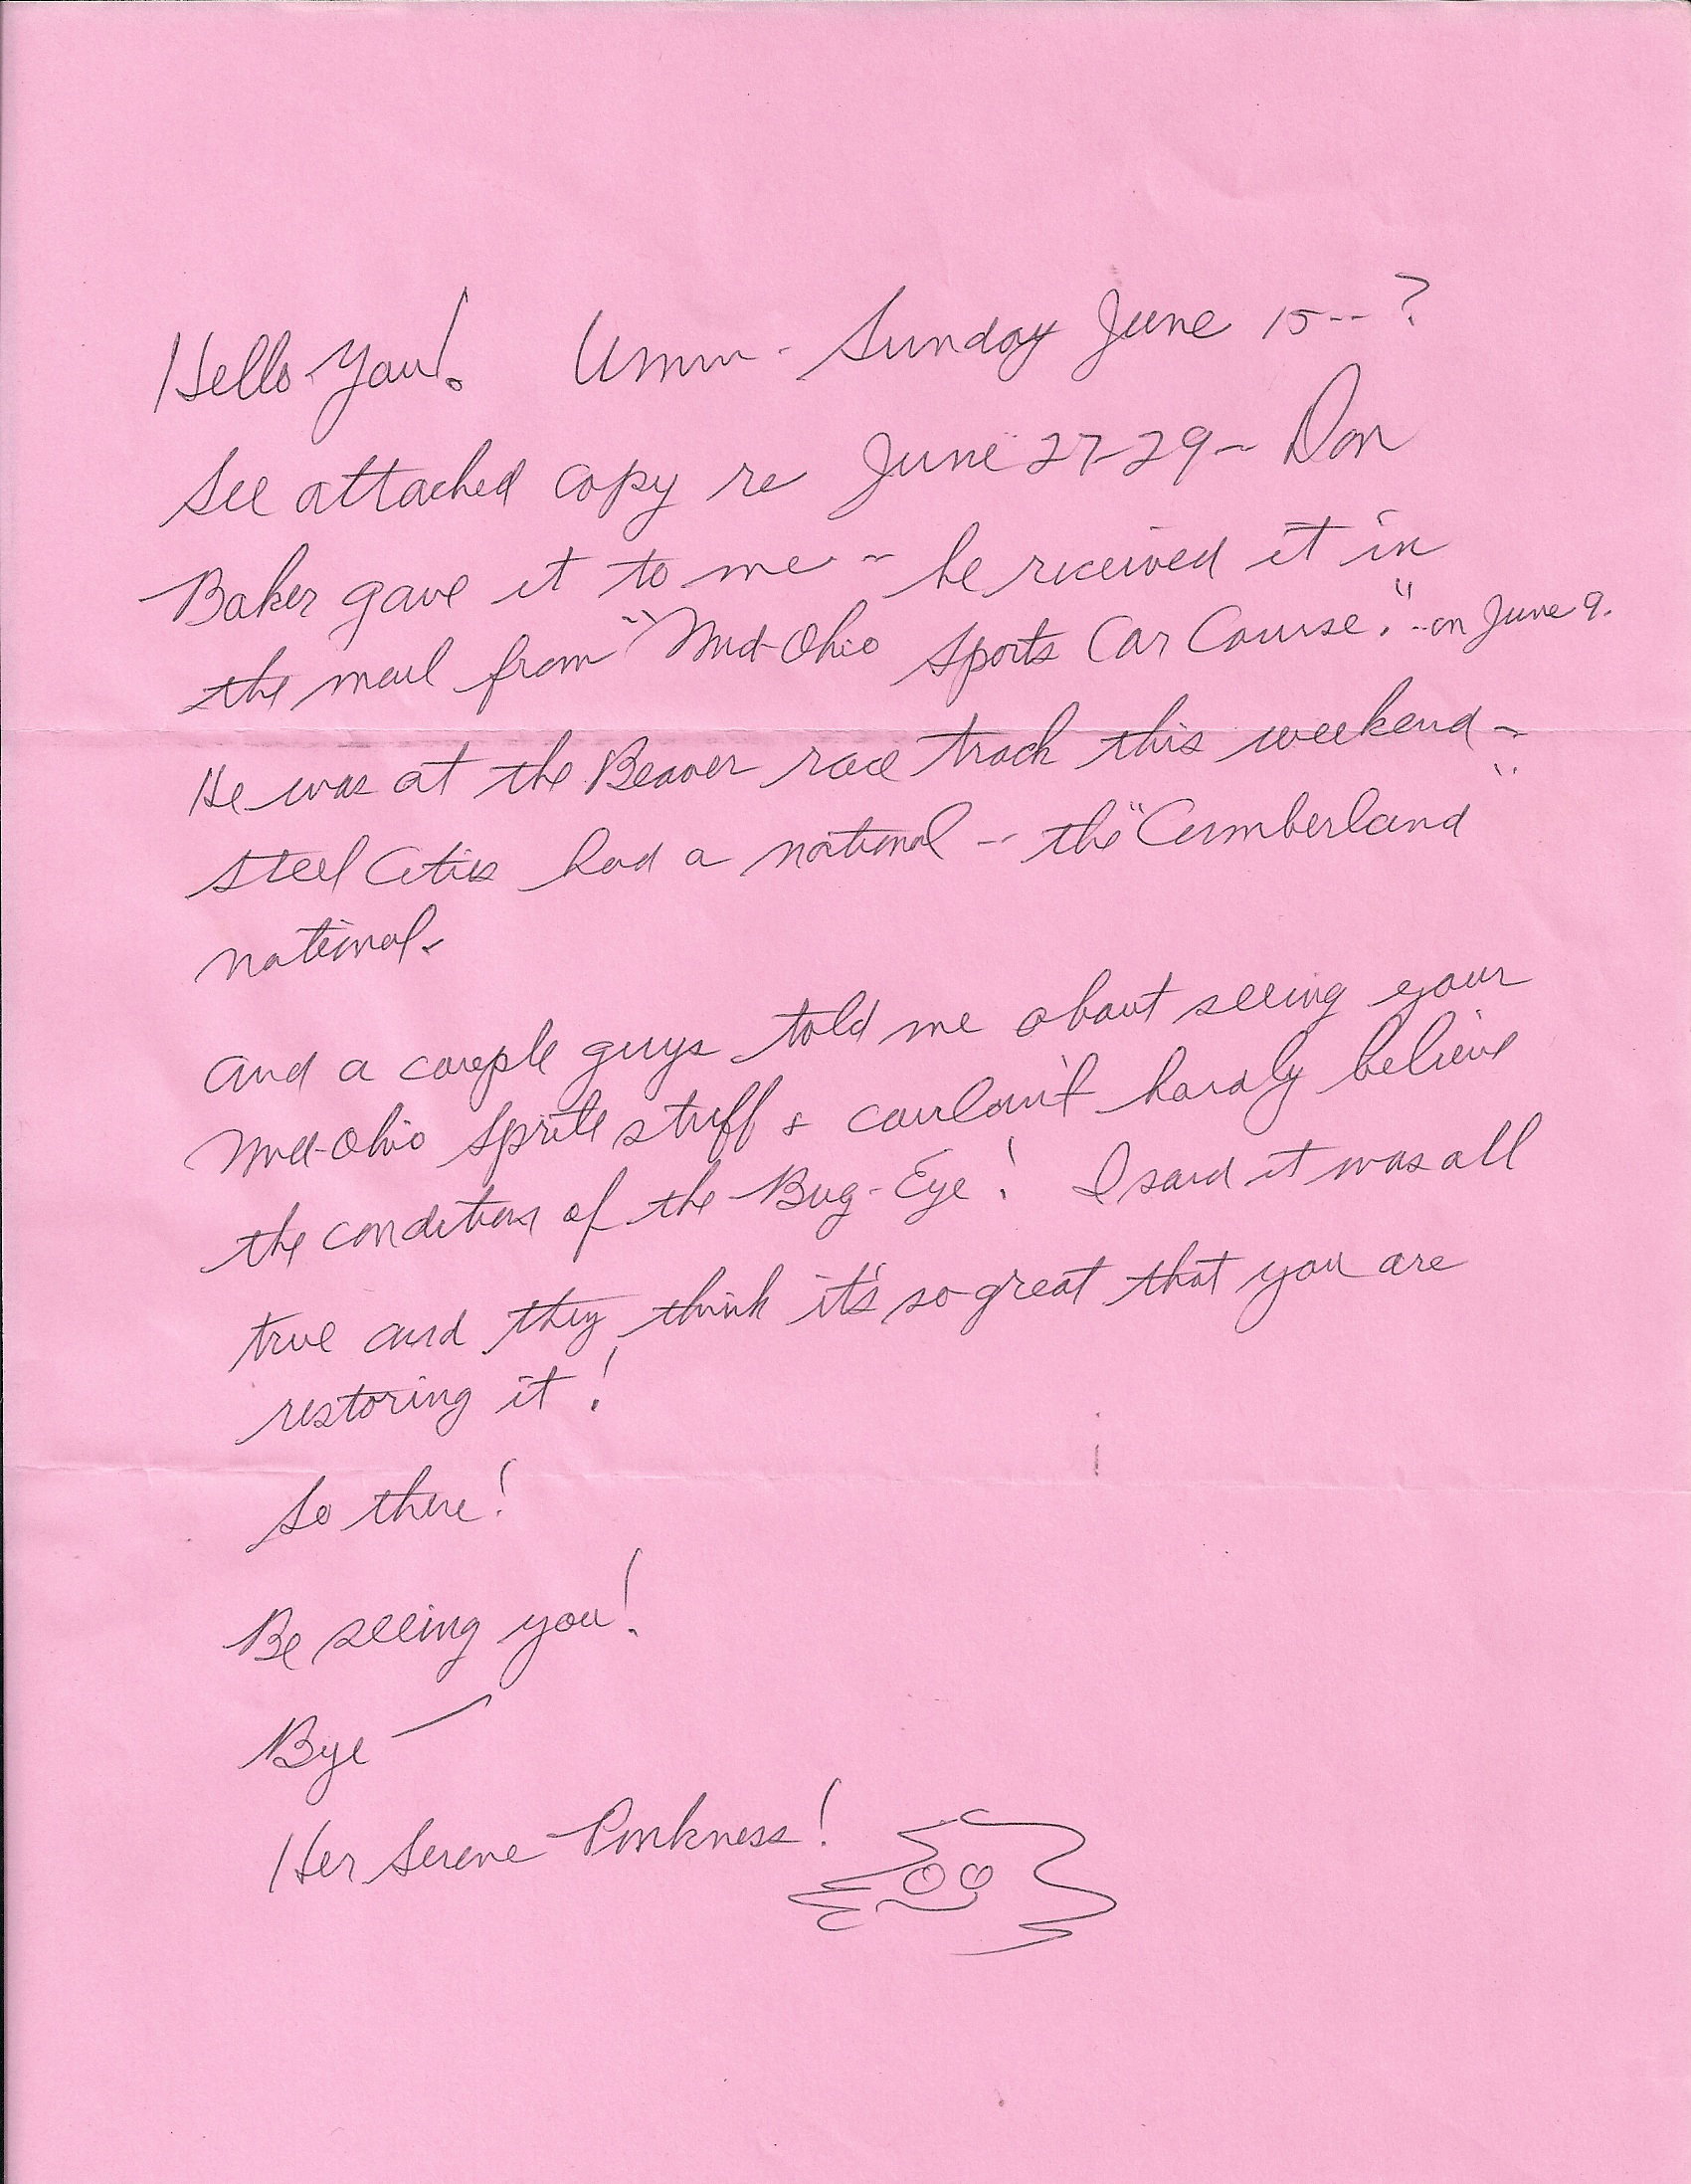 Hello You! Umm - Sunday June 15--?
See attached copy re June 27-29-- Don
Baker gave it to me -- he received it in
the mail from "Mid-Ohio Sports Car Course." --on June 9.
He was at the Beaver race track this weekend --
Steel Cities had a national -- the "Cumberland"
national.
And a couple guys told me about seeing your
Mid-Ohio Sprite stuff & couldn't hardly believe
the condition of the Bug-Eye! I said it was all
true and they think it's so great that you are
restoring it!
So there!
Be seeing you!
Bye —
Her Serene Pinkness!